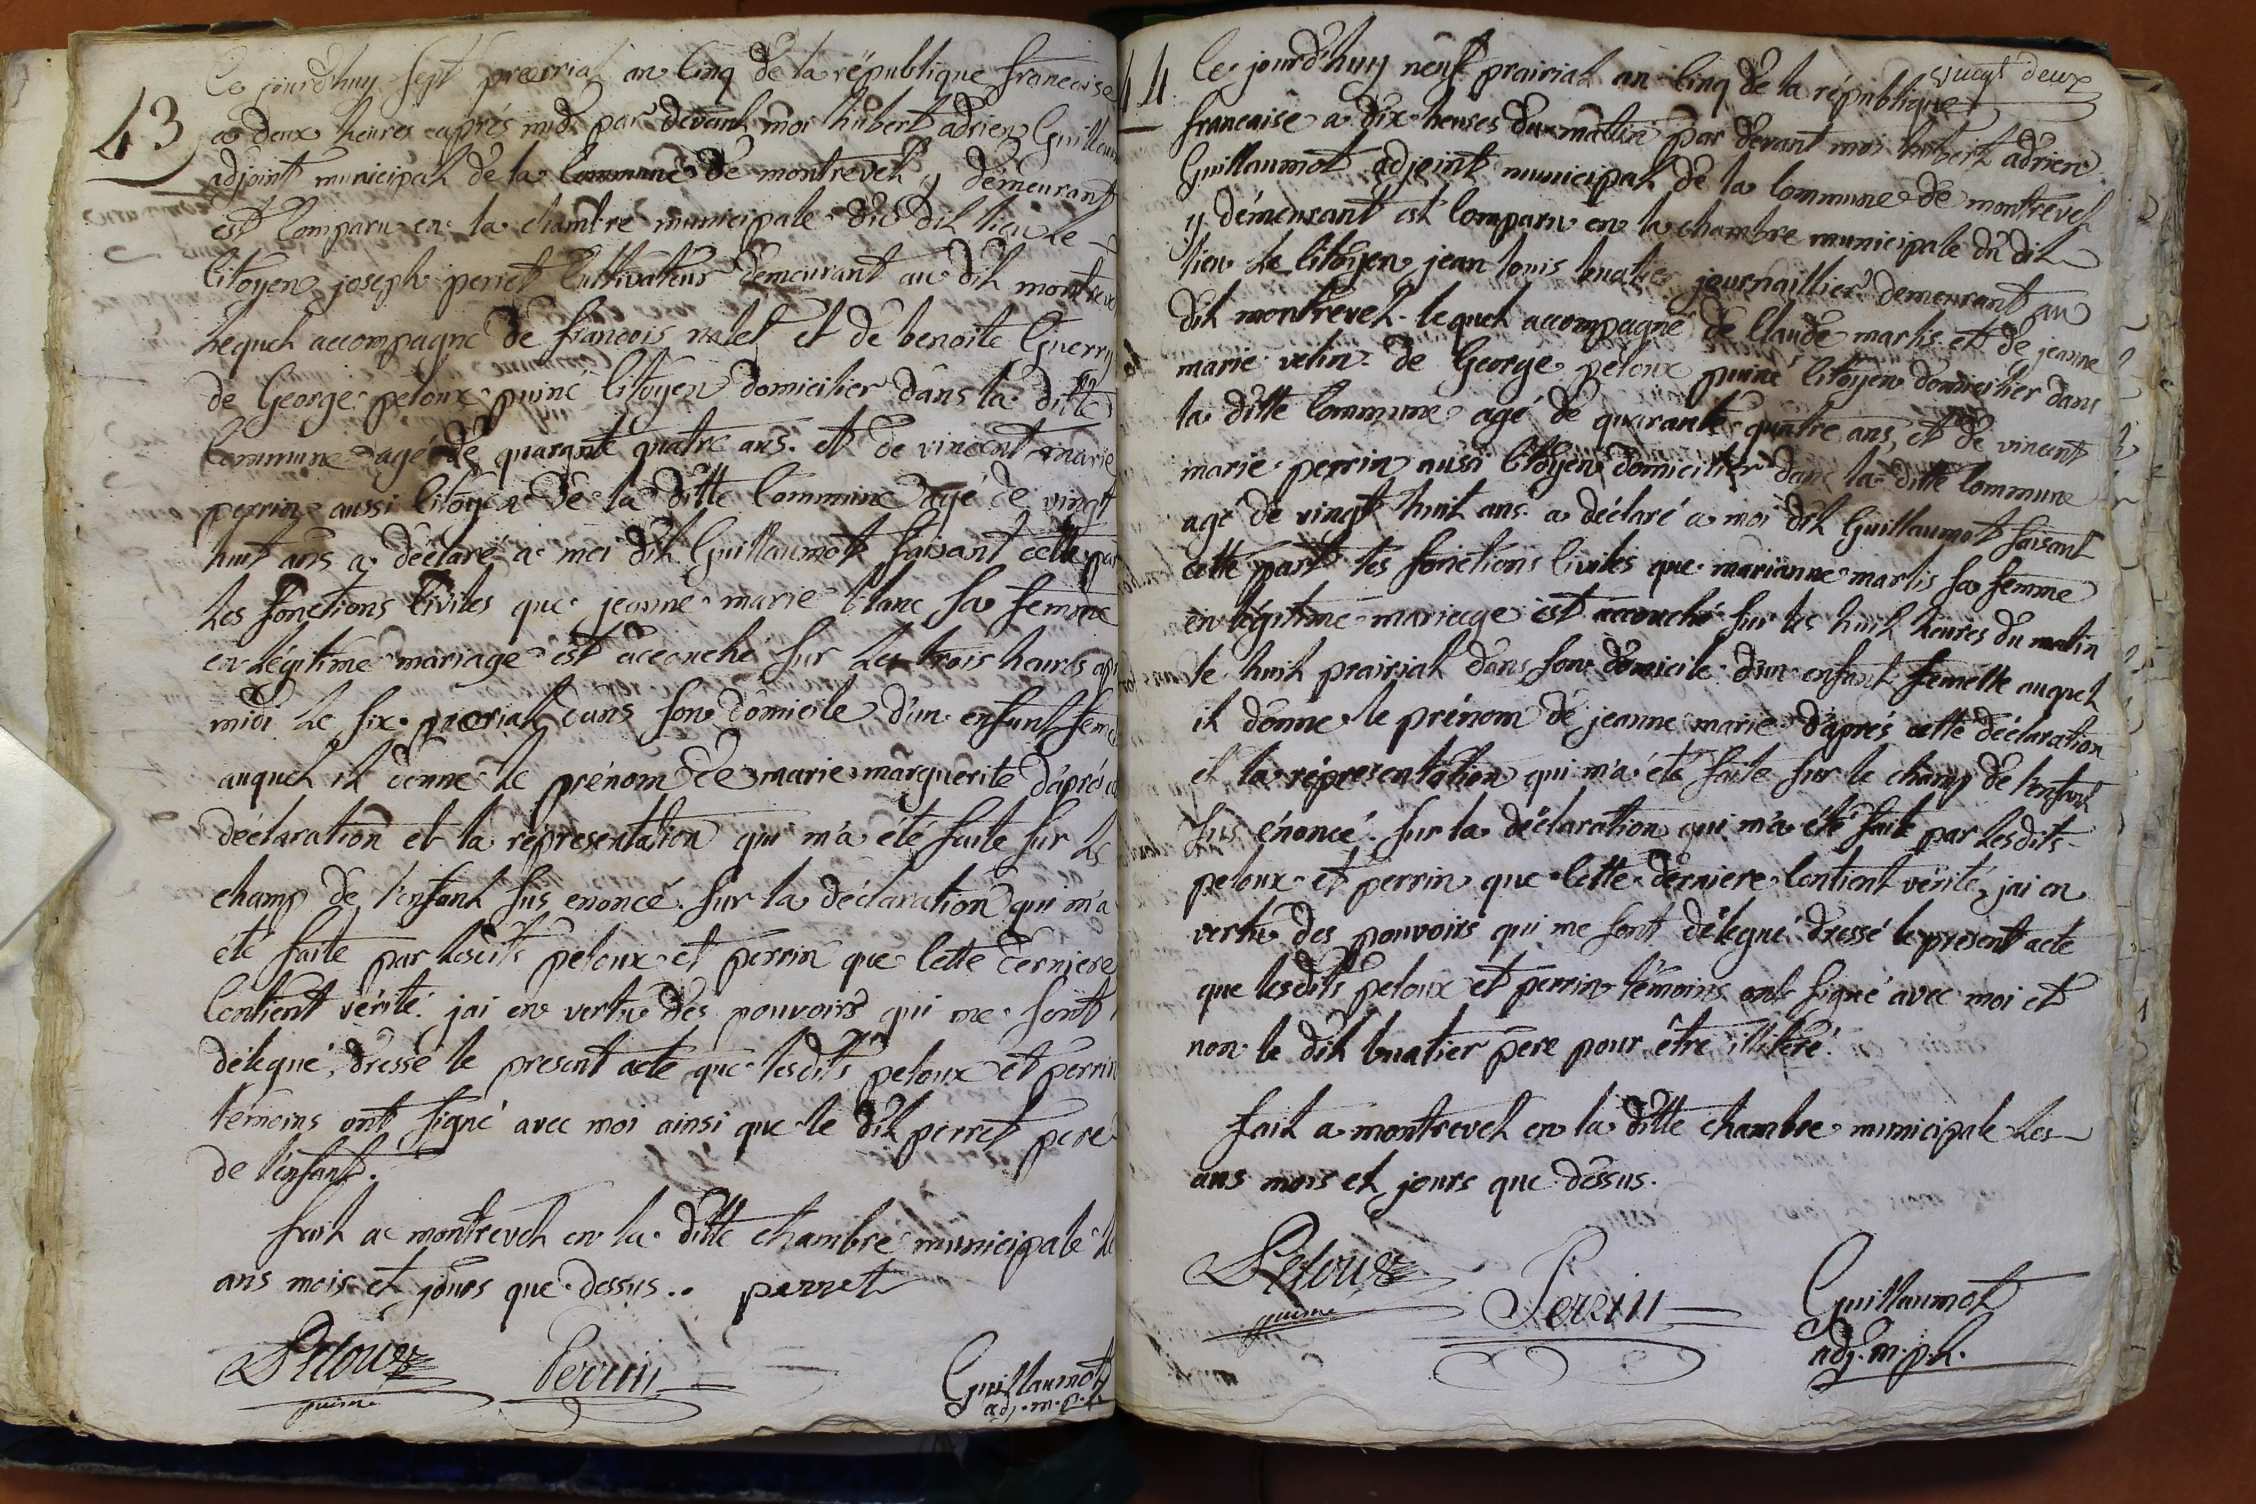 43
Ce jourd'huy sept prairial an cinq de la république francaise
a deux heures aprés midi par devant moi hubert adrien Guillaum
adjoint municipal de la Commune de montrevel y demeurant
est Comparu en la chambre municipale du dit lieu le
Citoyen joseph perret Cultivateur demeurant au dit montreve
lequel accompagné de francois nalet et de benoite Guerry
de George peloux puiné Citoyen domicilier dans la ditte
Commune agé de quarante quatre ans. et de vincent marie
perrin aussi Citoyen de la ditte Commune agé de vingt
huit ans a déclaré a moi dit Guillaumot faisant cette par
les fonctions Civiles que jeanne marie blanc sa femme
en légitime mariage est accouché sur les trois heures apr
midi le six prairial dans son domicile d'un enfant feme
auquel il donne le prénom de marie marguerite d'aprés
déclaration et la répresentation qui m'a été faite sur le
champ de l'enfant sus enoncé. sur la déclaration qui m'a
été faite par lesdits peloux et perrin que Cette derniere
Contient vérité. jai en vertu des pouvoirs qui me sont
délegué, dressé le present acte que lesdits peloux et perrin
témoins ont signé avec moi ainsi que le dit perret pere
de l'enfant.
fait a montrevel en la ditte chambre municipale le
ans mois et jours que dessus.. perret
Peloux
puiné
Perrin
Guillaumot
adj. m. p. l.
vingt deux
44
Ce jourd'huy neuf prairial an Cinq de la république
francaise a dix heures du matin par devant moi hubert adrien
Guillaumot adjoint municipal de la Commune de montrevel
y demeurant est Comparu en la chambre municipale du dit
lieu le Citoyen jean louis buatier journaillier demeurant au
dit montrevel. lequel accompagné de Claude marlis et de jeanne
marie velin de George peloux puiné Citoyen domicilier dans
la ditte Commune agé de quarante quatre ans, et de vincent
marie perrin aussi Citoyen domicilier dans la ditte Commune
agé de vingt huit ans a déclaré a moi dit Guillaumot faisant
cette part les fonctions Civiles que marianne marlis sa femme
en légitime mariage est accouché sur les huit heures du matin
le huit prairial dans son domicile d'un enfant femelle auquel
il donne le prénom de jeanne marie d'aprés cette déclaration
et la répresentation qui m'a été faite sur le champ de l'enfant
sus énoncé. sur la déclaration qui m'a été faite par lesdits
peloux et perrin que Cette derniere Contient vérité, jai en
vertu des pouvoirs qui me sont délegué dressé le present acte
que lesdits peloux et perrin témoins ont signé avec moi et
non le dit buatier pere pour être illiteré.
fait a montrevel en la ditte chambre municipale les
ans mois et jours que dessus.
Peloux
puiné
Perrin
Guillaumot
adj. m. p. l.